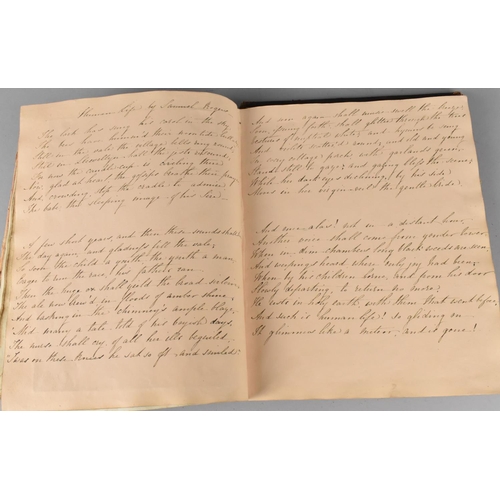 Human Life by Samuel Rogers
The lark has sung his carol in the sky
The bees have humm'd their noontide
Still in the vale the village bells ring round,
Still in Llewellyn hall the jests resound;
For now the caudle-cup is circling there
Now glad at heart the gossips breathe their prayer
And crowding stop the cradle to admire
The babe, the sleeping image of his Sire.
A few short years, and then these sounds shall
The day again, and gladness fill the vale;
So soon the child a youth, the youth a man,
Eager to run the race his fathers ran.
Then the huge ox shall yield the broad
The ale now brew'd in floods of amber shine,
And basking in the chimney's ample blaze,
Mid many a tale told of his boyish days,
The nurse shall cry of all her ills beguiled,
Twas on these knees he sat so oft and smiled.
And soon again shall music swell the breeze;
Soon, issuing forth shall glitter through the trees
Vestures of nuptial white; and hymns be sung
And violets scatter'd round; and old and young
In every cottage porch with garlands green,
Stand still to gaze, and gazing bless the scene;
While her dark eyes declining, by his side
Moves in her virgin veil the gentle bride.
And once, alas! nor in a distant hour,
Another voice shall come from yonder tower
When in dim chambers long black weeds are seen
And weepings heard where only joy had been;
When by his children borne, and from his door
Slowly departing, to return no more;
He rests in holy earth, with them that went before,
And such is human life; so gliding on
It glimmers like a meteor, and is gone!